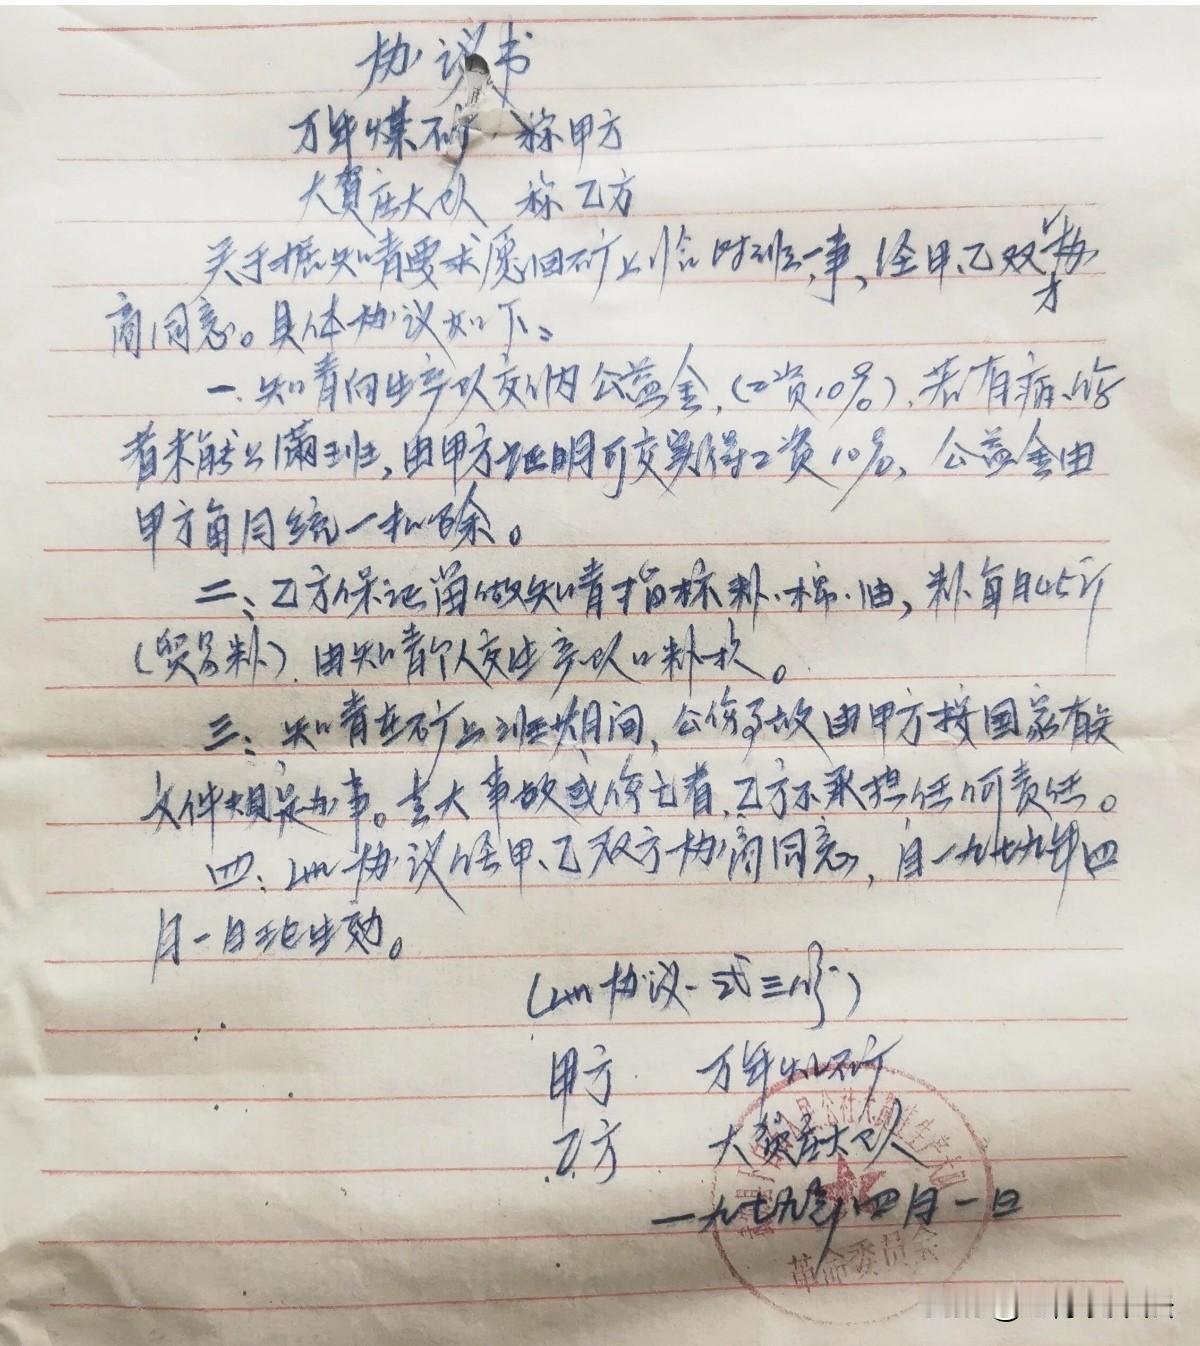 协议书
万年煤矿 称甲方
大贺庄大队 称乙方
关于 知青要求 回矿上临时班一事，经甲、乙双方协
商同意。具体协议如下：
一、知青向生产队交纳公益金，（工资10%）、若有病、伤
者未能上满班，由甲方证明可交实得工资10%、公益金由
甲方每月统一扣除。
二、乙方保证留做知青指标料、棉、油，料每月45斤
（贸易料）由知青个人交生产队口料款。
三、知青在矿上班期间，公伤事故由甲方按国家有关
文件规定办事。 大事故或伤亡者，乙方不承担任何责任。
四、此协议经甲、乙双方协商同意，自一九七九年四
月一日起生効。
（此协议一式三份）
甲方 万年煤矿
乙方 大贺庄大队
一九七九年四月一日
革命委员会